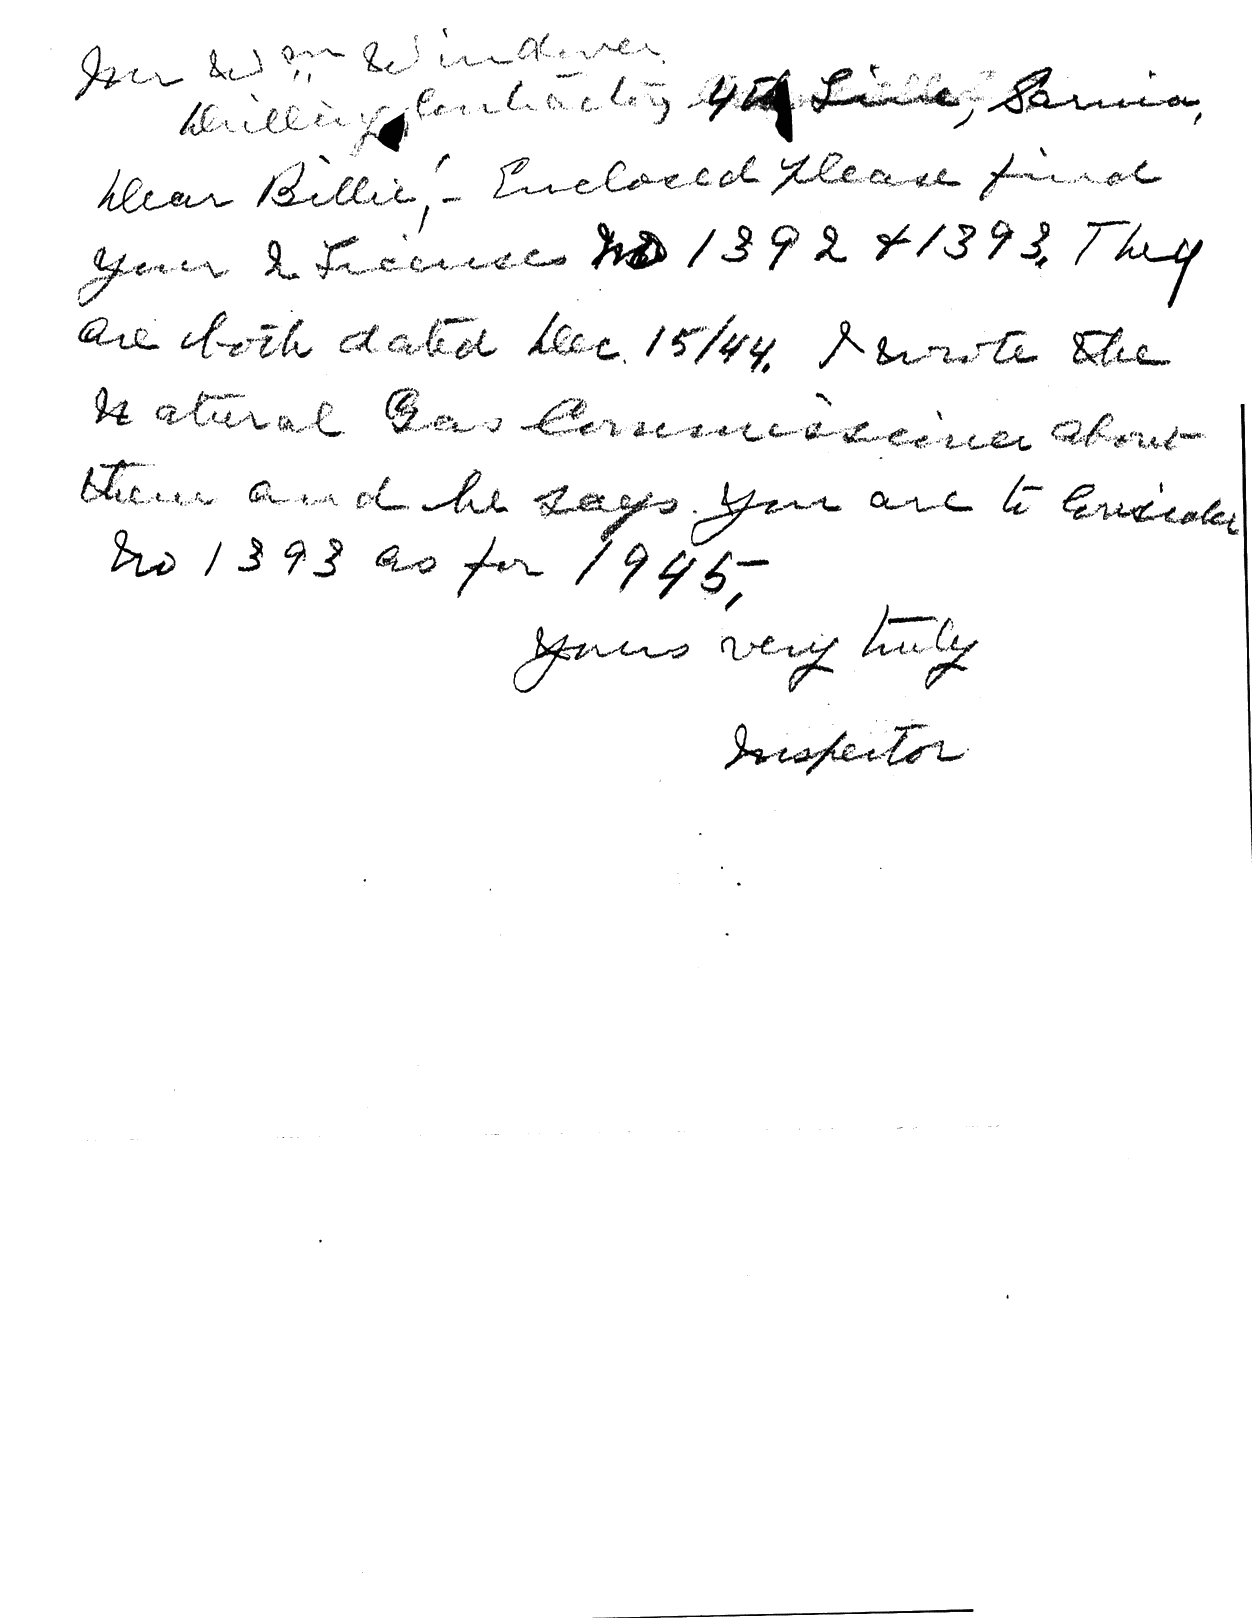 Mr Wm Windover
Drilling Contractor, 4th Line, Sarnia,
Dear Billie,- Enclosed please find
your 2 Licenses No 1392 & 1393. They
are both dated Dec. 15/44. I wrote the
Natural Gas Commissioner about
them and he says you are to Consider
No 1393 as for 1945,
Yours very truly
Inspector